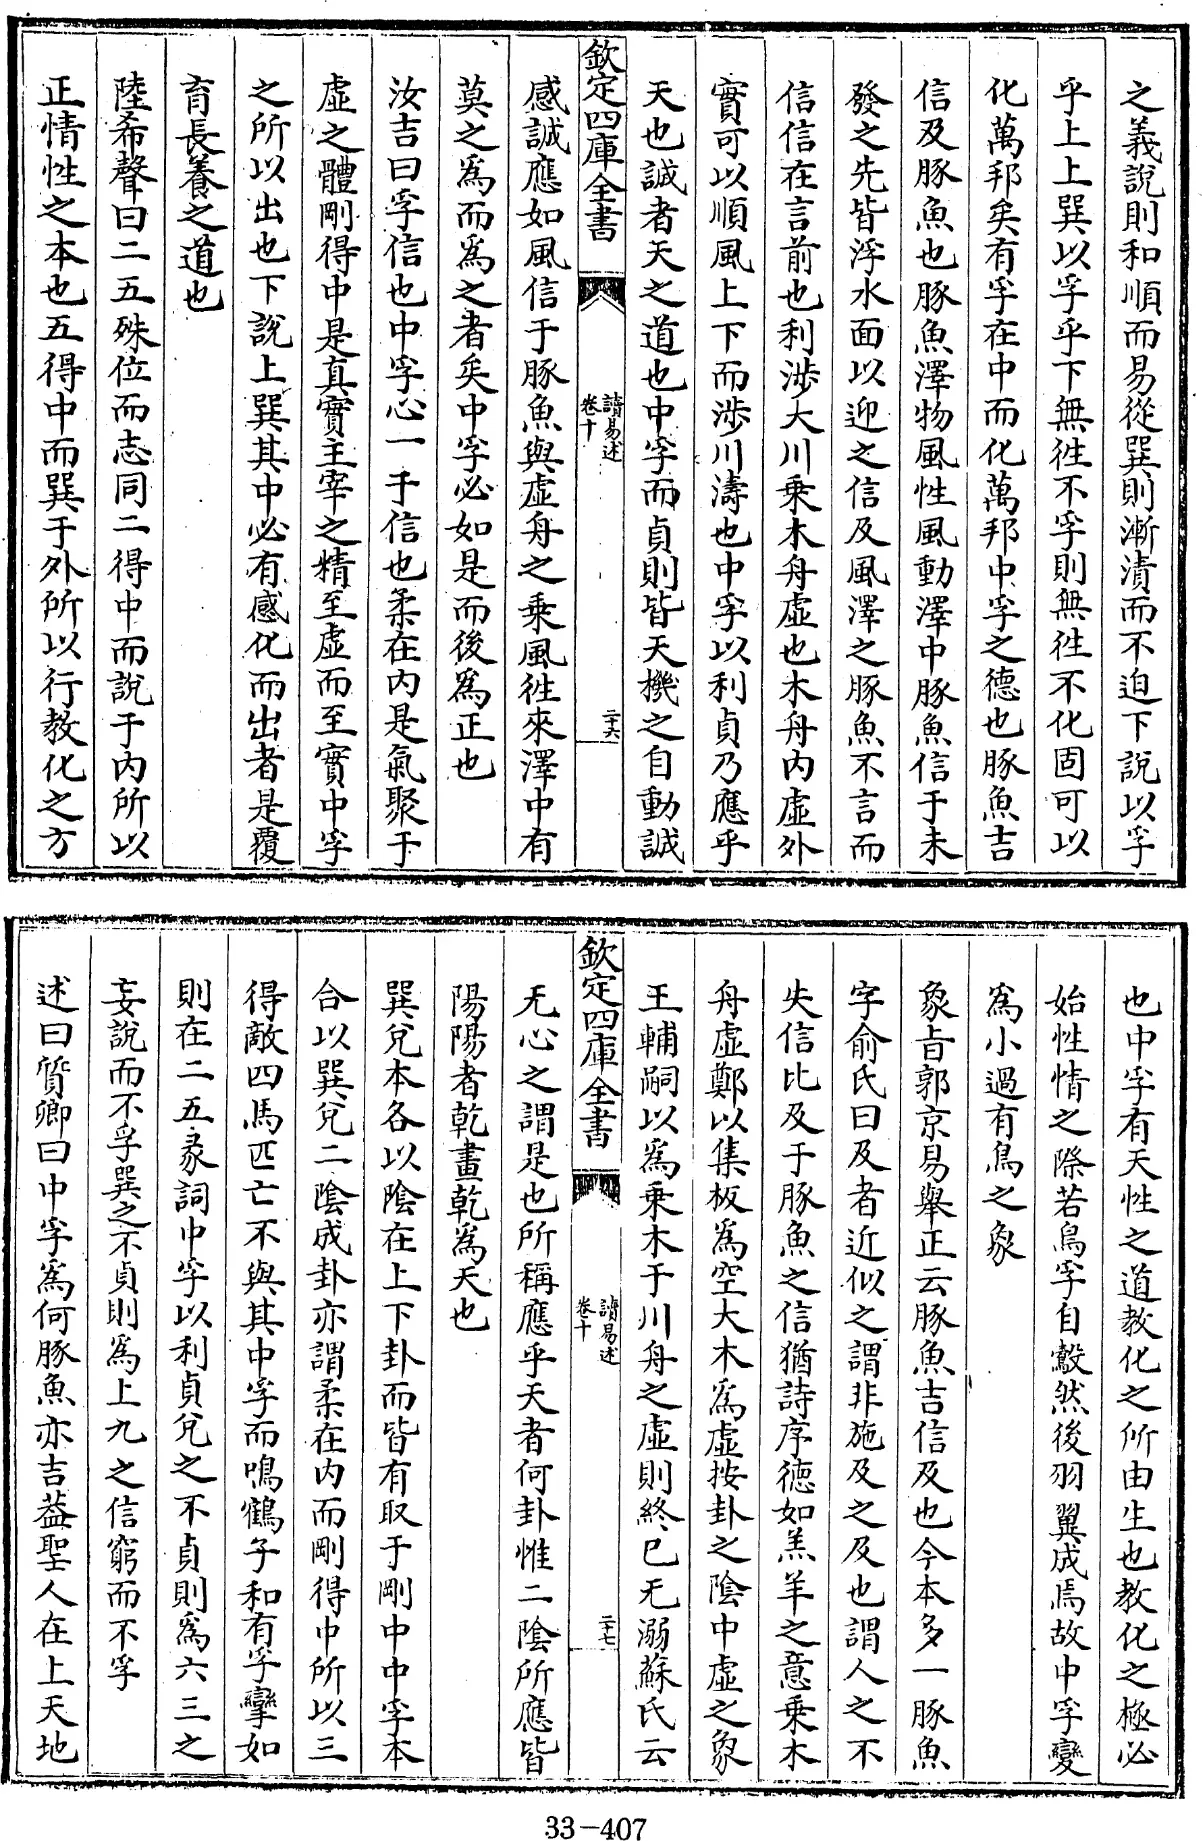 之義説則和順而易從巽則漸漬而不迫下説以孚
乎上上巽以孚乎下無徃不孚則無徃不化固可以
化萬邦矣有孚在中而化萬邦中孚之德也豚魚吉
信及豚魚也豚魚澤物風性風動澤中豚魚信于未
發之先皆浮水面以迎之信及風澤之豚魚不言而
信信在言前也利涉大川乗木舟虚也木舟内虚外
實可以順風上下而涉川濤也中孚以利貞乃應乎
天也誠者天之道也中孚而貞則皆天機之自動誠
欽定四庫全書
讀易述
卷十
二十六
感誠應如風信于豚魚與虚舟之乗風徃來澤中有
莫之為而為之者矣中孚必如是而後為正也
汝吉曰孚信也中孚心一于信也柔在内是氣聚于
虚之體剛得中是真實主宰之精至虚而至實中孚
之所以出也下説上巽其中必有感化而出者是覆
育長養之道也
陸希聲曰二五殊位而志同二得中而説于内所以
正情性之本也五得中而巽于外所以行教化之方
也中孚有天性之道教化之所由生也教化之極必
始性情之際若鳥孚自鷇然後羽翼成焉故中孚變
為小過有鳥之象
彖㫖郭京易舉正云豚魚吉信及也今本多一豚魚
字俞氏曰及者近似之謂非施及之及也謂人之不
失信比及于豚魚之信猶詩序德如羔羊之意乗木
舟虚鄭以集板為空大木為虚按卦之陰中虚之象
王輔嗣以為乗木于川舟之虚則終已无溺蘇氏云
欽定四庫全書
讀易述
卷十
二十七
无心之謂是也所稱應乎天者何卦惟二陰所應皆
陽陽者乾畫乾為天也
巽兌本各以陰在上下卦而皆有取于剛中中孚本
合以巽兌二陰成卦亦謂柔在内而剛得中所以三
得敵四馬匹亡不與其中孚而鳴鶴子和有孚攣如
則在二五彖詞中孚以利貞兌之不貞則為六三之
妄説而不孚巽之不貞則為上九之信窮而不孚
述曰質卿曰中孚為何豚魚亦吉葢聖人在上天地
33-407